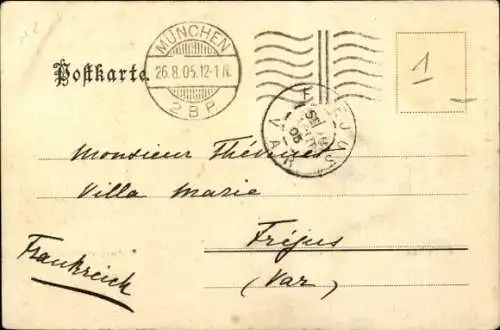 MÜNCHEN
26.8.05.12-1N.
2 B P
Postkarte
1
FREJUS
VAR
05
Monsieur
Villa Marie
Fréjus
(Var)
Frankreich